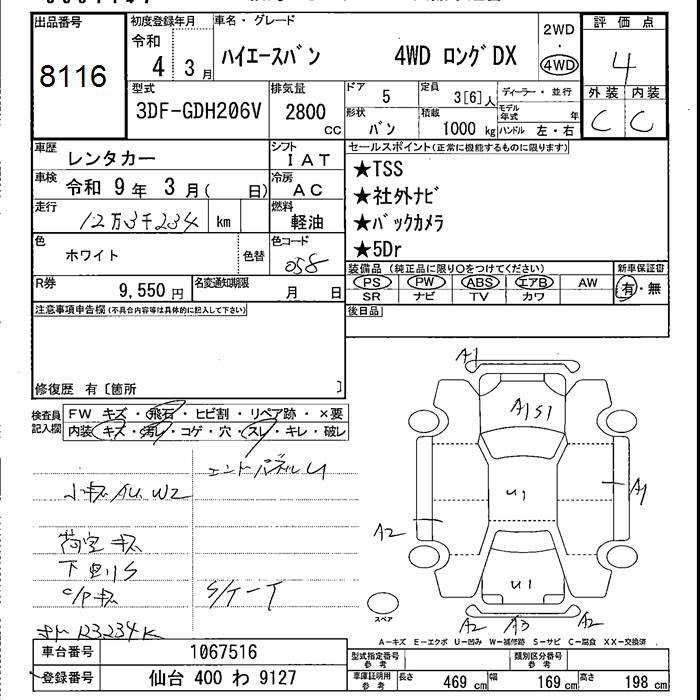 出品番号
8116
初度登録年月
令和
4 3月
車名・グレード
ハイエースバン 4WD ロングDX
2WD
・
4WD
評価点
4
外装 内装
C C
型式
3DF-GDH206V
排気量
2800
cc
ドア
5
定員
3[6]人
ディーラー・並行
形状
バン
積載
1000 kg
モデル年式 年
ハンドル 左・右
車歴
レンタカー
シフト
IAT
車検
令和 9年 3月( 日)
冷房
AC
走行
12万3千234 km
燃料
軽油
色
ホワイト
色替
色コード
058
R券
9,550 円
名変通知期限
月 日
セールスポイント(正常に機能するものに限ります)
★TSS
★社外ナビ
★バックカメラ
★5Dr
装備品 (純正品に限り○をつけてください)
新車保証書
PS PW ABS エアB AW
SR ナビ TV カワ
有・無
後日品
注意事項申告欄(不具合内容等は具体的に記入して下さい)
修復歴 有〔箇所 〕
検査員記入欄
FW キズ・飛石・ヒビ割・リペア跡・×要
内装 キズ・汚レ・コゲ・穴・スレ・キレ・破レ
エンドパネルU
小キズ AU W2
荷室 キズ
下廻りS
C/Pキズ
S/ケース
123234K
A1
A1S1
U1
A1
A2
U1
A2 A3 A2
スペア
A-キズ E-エクボ U-凹み W-補修跡 S-サビ C-腐食 XX-交換済
車台番号
1067516
登録番号
仙台 400 わ 9127
型式指定番号
参考
類別区分番号
参考
車庫証明用
参考
長さ 469 cm
幅 169 cm
高さ 198 cm